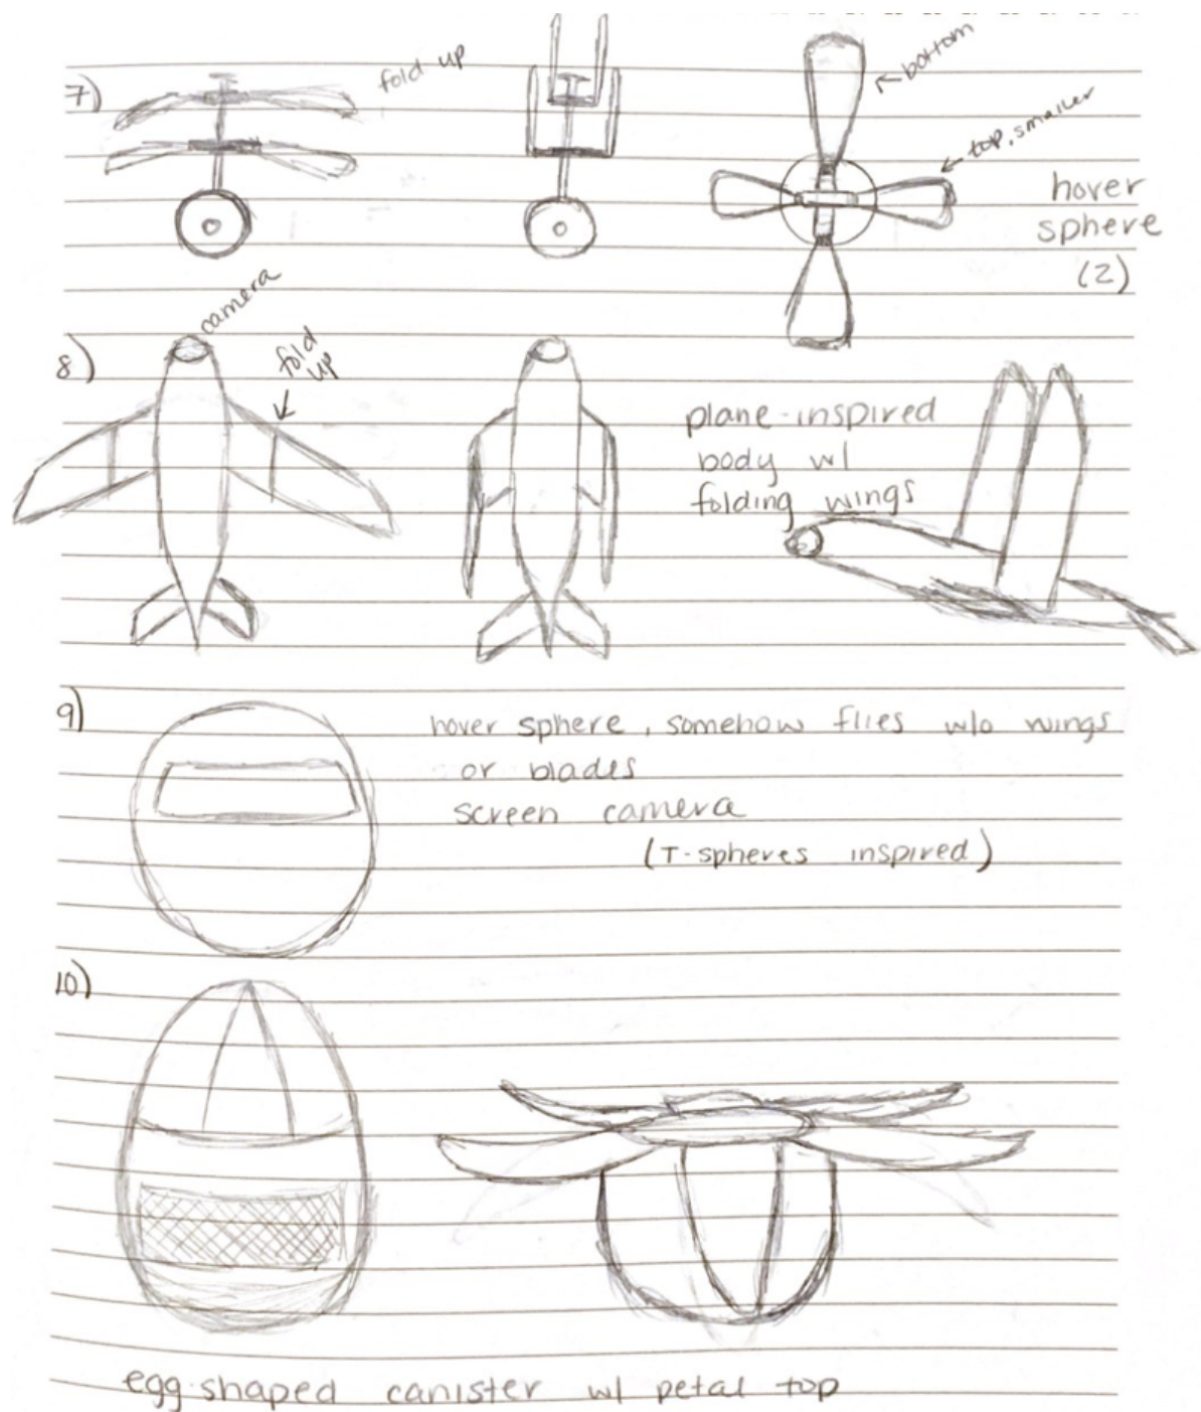 7)
fold up
bottom
top, smaller
hover
sphere
(2)
8)
camera
fold
up
plane-inspired
body w/
folding wings
9)
hover sphere, somehow flies w/o wings
or blades
screen camera
(T-spheres inspired)
10)
egg-shaped canister w/ petal top